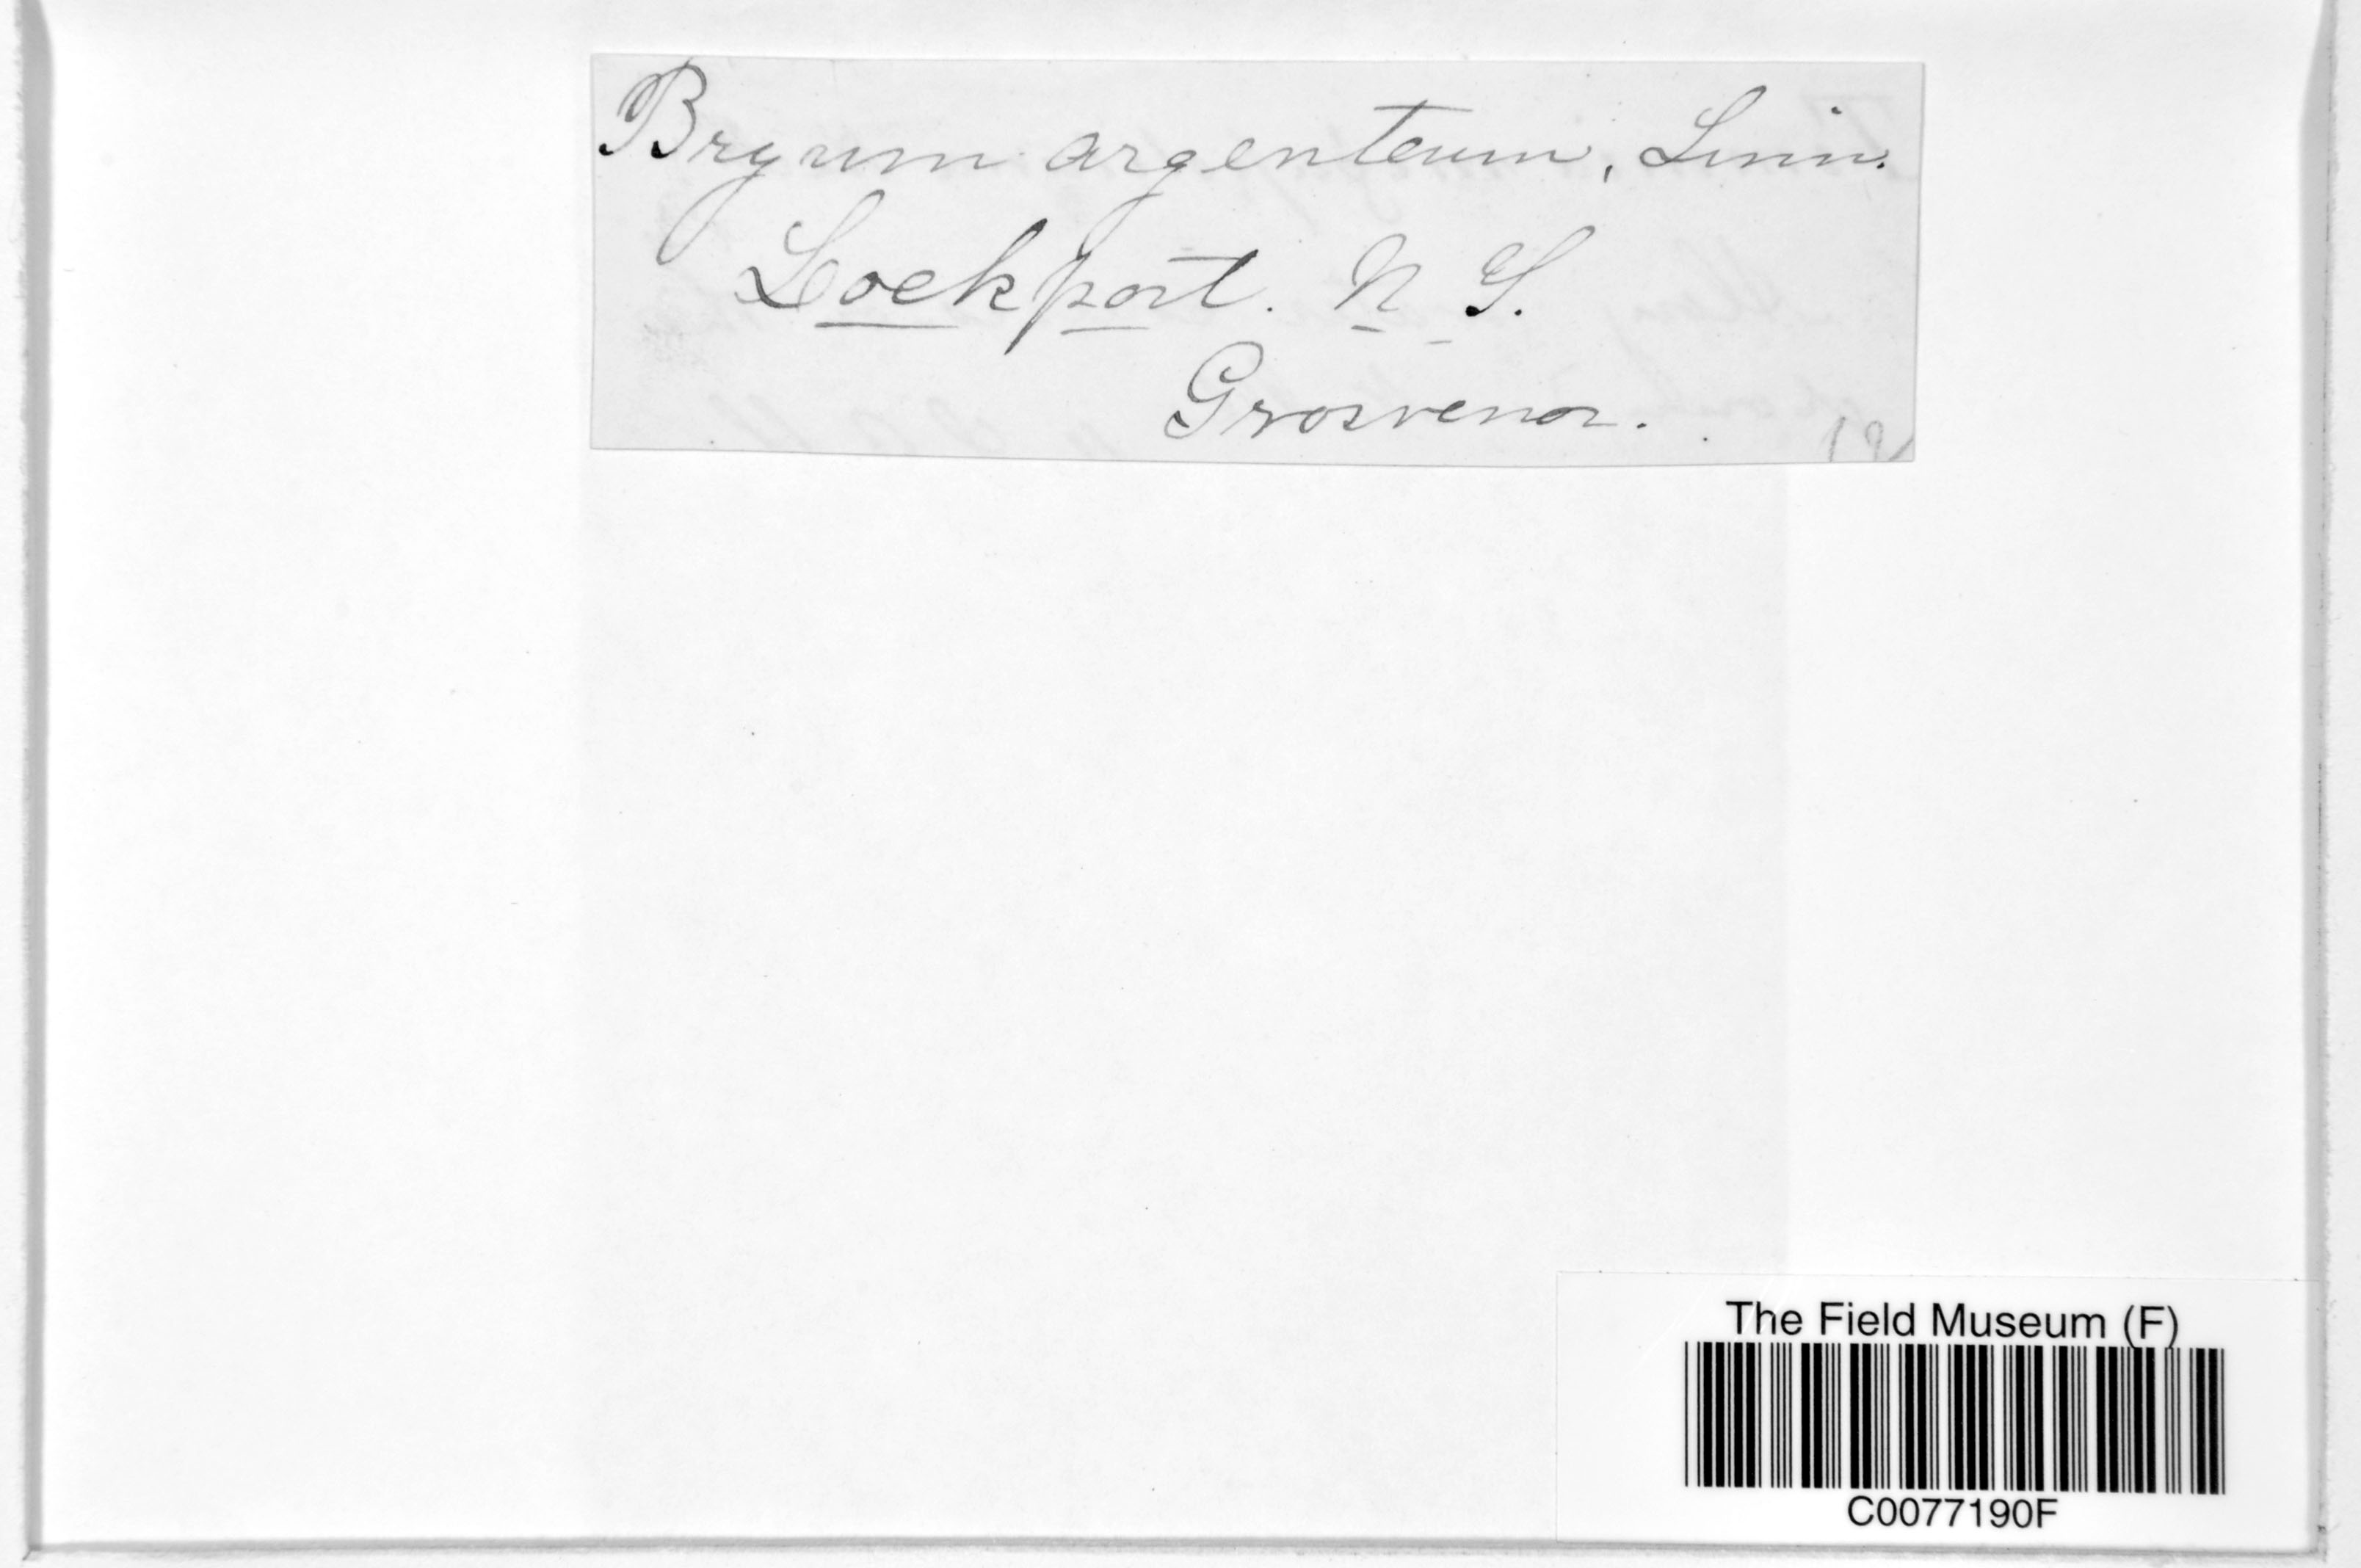 Bryum argenteum, Linn.
Lockport. N Y.
Grosvenor.
The Field Museum (F)
C0077190F